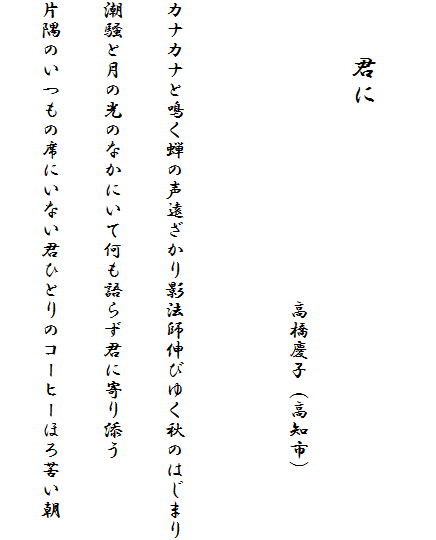 君に
高橋慶子（高知市）
カナカナと鳴く蝉の声遠ざかり影法師伸びゆく秋のはじまり
潮騒と月の光のなかにいて何も語らず君に寄り添う
片隅のいつもの席にいない君ひとりのコーヒーほろ苦い朝